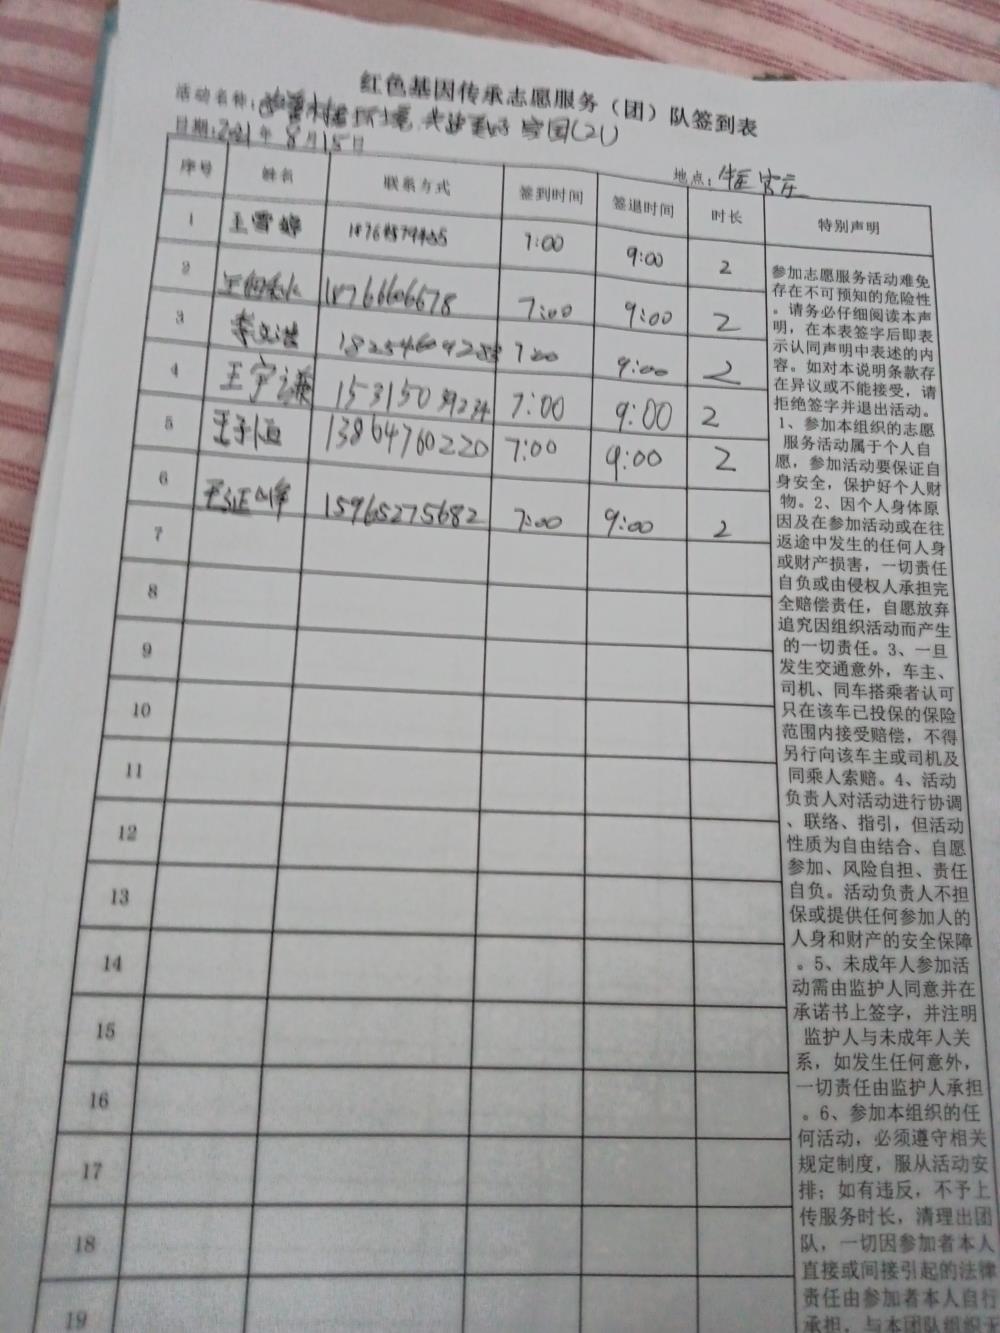 红色基因传承志愿服务（团）队签到表
活动名称：改善村居环境,共建美好家园(21)
日期:2021年8月15日
地点：
序号 姓名 联系方式 签到时间 签退时间 时长 特别声明
1 王雪婷 7:00 9:00 2
2 18766606678 7:00 9:00 2
3 李文浩 7:00 9:00 2
4 王宇谦 15315039234 7:00 9:00 2
5 王子恒 13864760220 7:00 9:00 2
6 15965275682 7:00 9:00 2
7
8
9
10
11
12
13
14
15
16
17
18
19
参加志愿服务活动难免
存在不可预知的危险性
。请务必仔细阅读本声
明，在本表签字后即表
示认同声明中表述的内
容。如对本说明条款存
在异议或不能接受，请
拒绝签字并退出活动。
1、参加本组织的志愿
服务活动属于个人自
愿，参加活动要保证自
身安全，保护好个人财
物。2、因个人身体原
因及在参加活动或在往
返途中发生的任何人身
或财产损害，一切责任
自负或由侵权人承担完
全赔偿责任，自愿放弃
追究因组织活动而产生
的一切责任。3、一旦
发生交通意外，车主、
司机、同车搭乘者认可
只在该车已投保的保险
范围内接受赔偿，不得
另行向该车主或司机及
同乘人索赔。4、活动
负责人对活动进行协调
、联络、指引，但活动
性质为自由结合、自愿
参加、风险自担、责任
自负。活动负责人不担
保或提供任何参加人的
人身和财产的安全保障
。5、未成年人参加活
动需由监护人同意并在
承诺书上签字，并注明
监护人与未成年人关
系，如发生任何意外，
一切责任由监护人承担
。6、参加本组织的任
何活动，必须遵守相关
规定制度，服从活动安
排；如有违反，不予上
传服务时长，清理出团
队，一切因参加者本人
直接或间接引起的法律
责任由参加者本人自行
承担，与本团队组织无